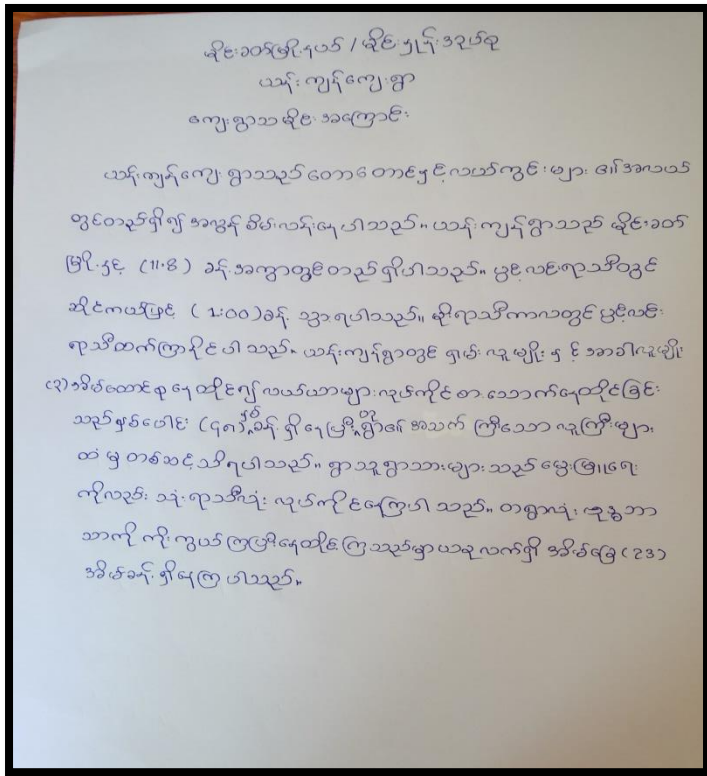 မိုင်းခတ်မြို့နယ် / မိုင်းဟွန်းဒုပ်စု
ယန်းကျန်ကျေးရွာ
ကျေးရွာသမိုင်းအကြောင်း
ယန်းကျန်ကျေးရွာသည် တောတောင်နှင့်လယ်ကွင်းများ ၏ အလယ်
တွင်တည်ရှိ၍ အလွန်စိမ်းလန်းနေပါသည်။ ယန်းကျန်ရွာသည် မိုင်းခတ်
မြို့နှင့် (11.8) ခန့် အကွာတွင်တည်ရှိပါသည်။ ပွင့်လင်းရာသီတွင်
ဆိုင်ကယ်ဖြင့် ( 1:00 )ခန့် သွားရပါသည်။ မိုးရာသီကာလတွင် ပွင့်လင်း
ရာသီထက်ကြာနိုင်ပါသည်။ ယန်းကျန်ရွာတွင် ရှမ်းလူမျိုးနှင့် အာခါလူမျိုး
(၃)အိမ်ထောင်စုနေထိုင်၍ လယ်ယာများလုပ်ကိုင်စားသောက်နေထိုင်ခြင်း
သည် နှစ်ပေါင်း (၄၈)နှစ်ခန့် ရှိနေပြီးဟု ရွာ၏ အသက်ကြီးသော လူကြီးများ
ထံမှ တစ်ဆင့်သိရပါသည်။ ရွာသူရွာသားများသည် မွေးမြူရေး
ကိုလည်း သုံးရာသီလုံး လုပ်ကိုင်နေကြပါသည်။ တရွာလုံး ဗုဒ္ဓဘာ
သာကို ကိုးကွယ်ကြပြီးနေထိုင်ကြသည်မှာ ယခုလက်ရှိ အိမ်ခြေ (23)
အိမ်ခန့် ရှိနေကြပါသည်။